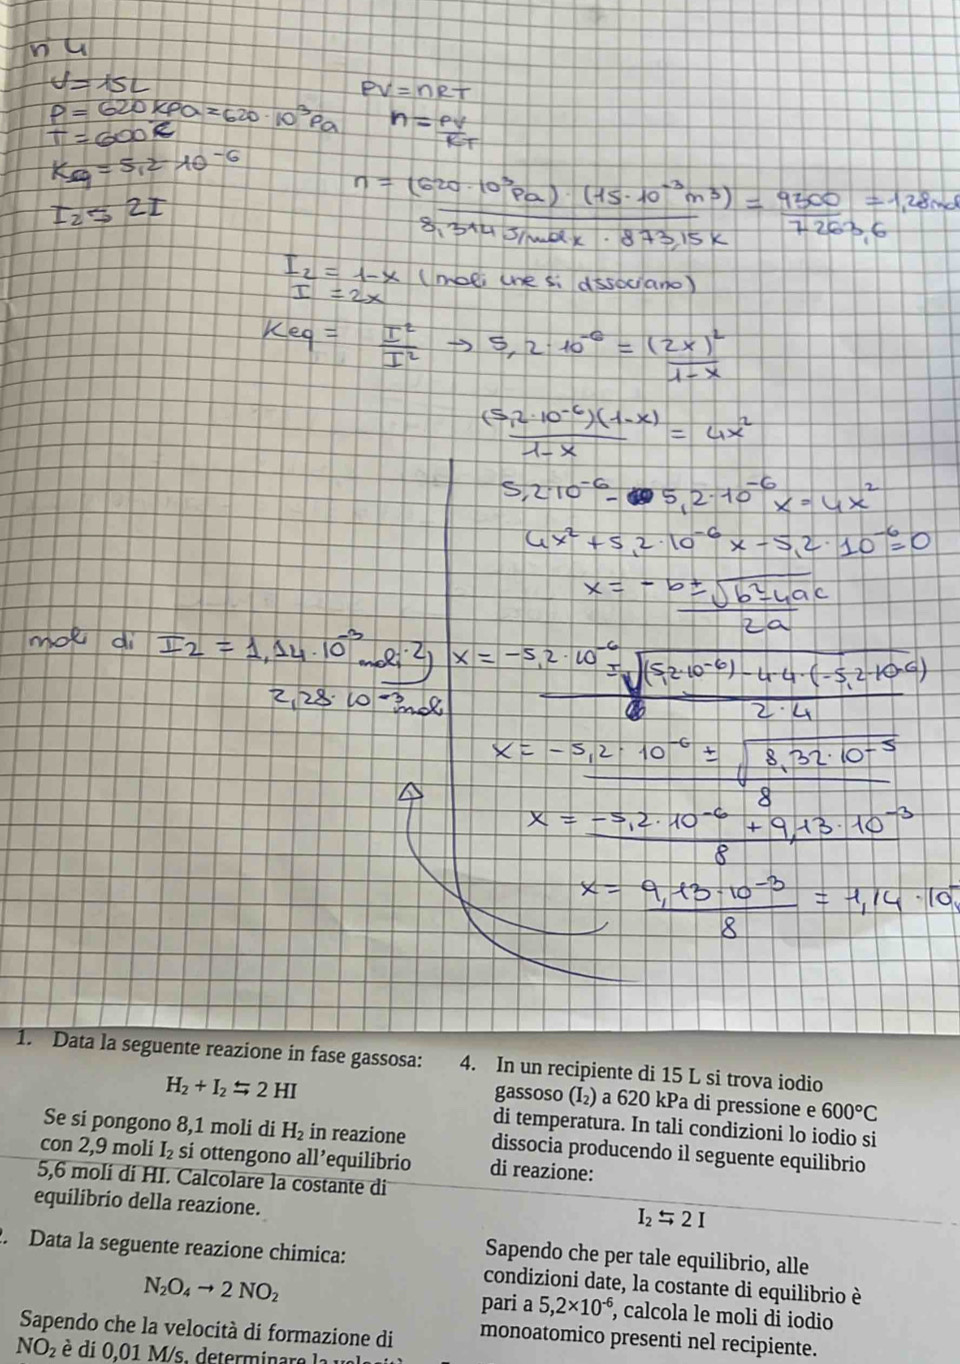 n 4
V=15L
P=620kPa=620·10³Pa
T=600°C
Keq=5,2·10⁻⁶
I₂⇆2I
PV=nRT
n=PV/RT
n=(620·10³Pa)·(15·10⁻³m³)/8,314J/mol·K·873,15K = 9300/7263,6 =1,28mol
I₂=1-x (moli che si dissociano)
I =2x
Keq= I²/I² → 5,2·10⁻⁶=(2x)²/1-x
(5,2·10⁻⁶)(1-x)/1-x = 4x²
5,2·10⁻⁶-5,2·10⁻⁶x=4x²
4x²+5,2·10⁻⁶x-5,2·10⁻⁶=0
x= -b±√b²-4ac/2a
x= -5,2·10⁻⁶±√(5,2·10⁻⁶)-4·4·(-5,2·10⁻⁶)/2·4
x= -5,2·10⁻⁶ ± √8,32·10⁻⁵/8
x= -5,2·10⁻⁶+9,13·10⁻³/8
x= 9,13·10⁻³/8 = 1,14·10
mol di I2=1,14·10⁻³moli·2)
2,28·10⁻³mol
1. Data la seguente reazione in fase gassosa:
H₂ + I₂ ⇆ 2 HI
Se si pongono 8,1 moli di H₂ in reazione
con 2,9 moli I₂ si ottengono all'equilibrio
5,6 moli di HI. Calcolare la costante di
equilibrio della reazione.
. Data la seguente reazione chimica:
N₂O₄ → 2 NO₂
Sapendo che la velocità di formazione di
NO₂ è di 0,01 M/s, determinare la
4. In un recipiente di 15 L si trova iodio
gassoso (I₂) a 620 kPa di pressione e 600°C
di temperatura. In tali condizioni lo iodio si
dissocia producendo il seguente equilibrio
di reazione:
I₂ ⇆ 2 I
Sapendo che per tale equilibrio, alle
condizioni date, la costante di equilibrio è
pari a 5,2×10⁻⁶, calcola le moli di iodio
monoatomico presenti nel recipiente.